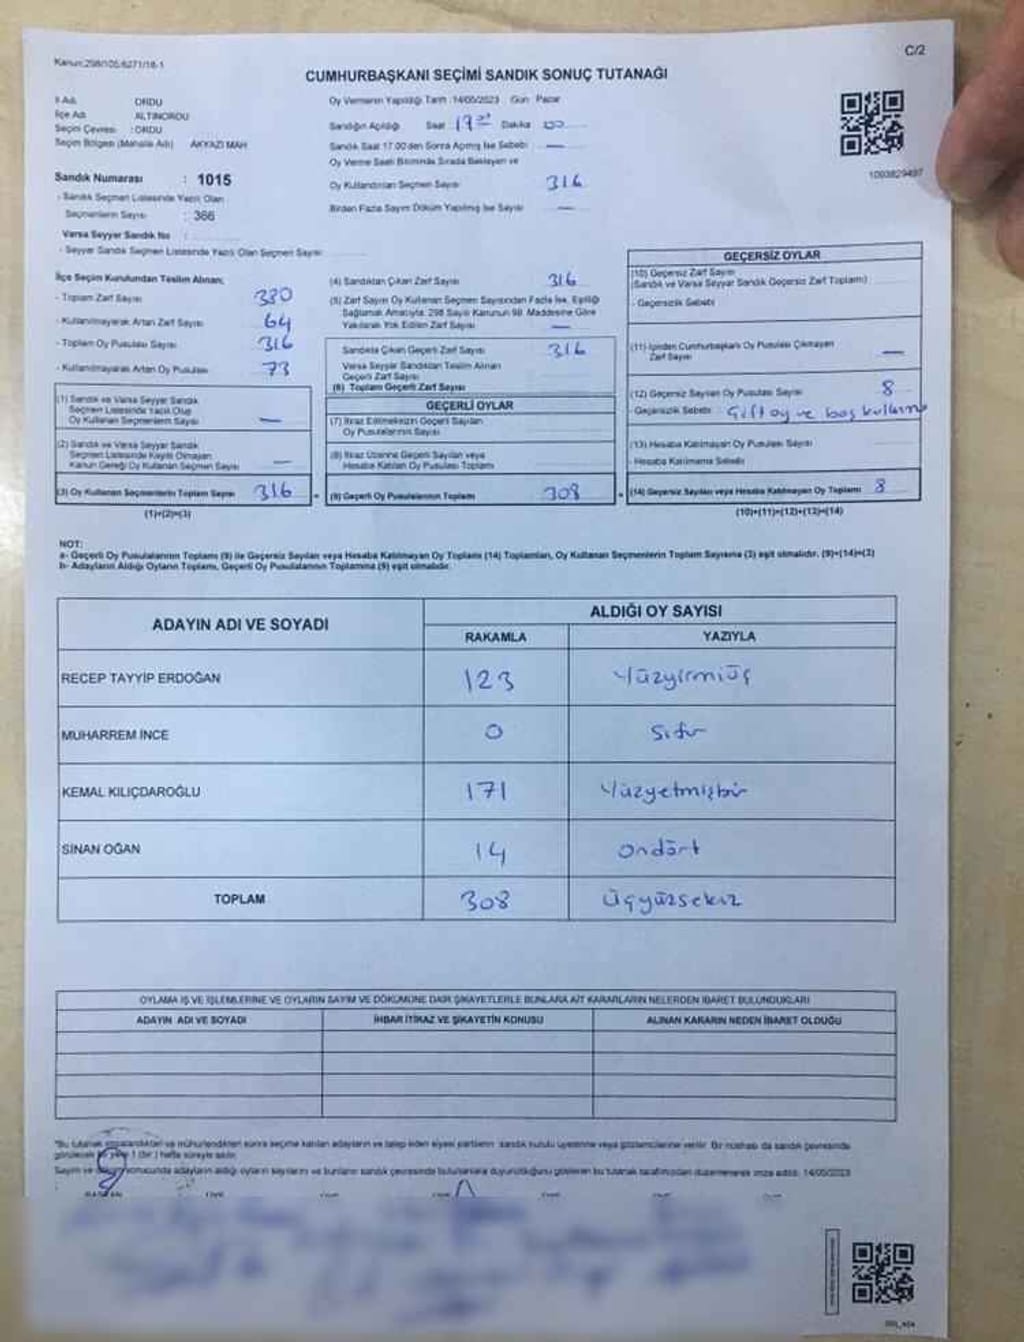 Kanun:298/105,6271/18-1
C/2
CUMHURBAŞKANI SEÇİMİ SANDIK SONUÇ TUTANAĞI
İl Adı ORDU
İlçe Adı ALTINORDU
Seçim Çevresi : ORDU
Seçim Bölgesi (Mahalle Adı) AKYAZI MAH
Sandık Numarası : 1015
- Sandık Seçmen Listesinde Yazılı Olan
Seçmenlerin Sayısı : 366
Varsa Seyyar Sandık No :
- Seyyar Sandık Seçmen Listesinde Yazılı Olan Seçmen Sayısı
Oy Vermenin Yapıldığı Tarih :14/05/2023 Gün Pazar
Sandığın Açıldığı Saat 17 Dakika 00
Sandık Saat 17.00'den Sonra Açılmış İse Sebebi —
Oy Verme Saati Bitiminde Sırada Bekleyen ve
Oy Kullandırılan Seçmen Sayısı 316
Birden Fazla Sayım Döküm Yapılmış İse Sayısı —
1093829497
İlçe Seçim Kurulundan Teslim Alınan;
- Toplam Zarf Sayısı 380
- Kullanılmayarak Artan Zarf Sayısı 64
- Toplam Oy Pusulası Sayısı 316
- Kullanılmayarak Artan Oy Pusulası 73
(1) Sandık ve Varsa Seyyar Sandık
Seçmen Listesinde Yazılı Olup
Oy Kullanan Seçmenlerin Sayısı —
(2) Sandık ve Varsa Seyyar Sandık
Seçmen Listesinde Kayıtlı Olmayan
Kanun Gereği Oy Kullanan Seçmen Sayısı —
(3) Oy Kullanan Seçmenlerin Toplam Sayısı 316
(1)+(2)=(3)
(4) Sandıktan Çıkan Zarf Sayısı 316
(5) Zarf Sayısı Oy Kullanan Seçmen Sayısından Fazla İse, Eşitliği
Sağlamak Amacıyla, 298 Sayılı Kanunun 98. Maddesine Göre
Yakılarak Yok Edilen Zarf Sayısı —
Sandıkta Çıkan Geçerli Zarf Sayısı 316
Varsa Seyyar Sandıktan Teslim Alınan
Geçerli Zarf Sayısı
(6) Toplam Geçerli Zarf Sayısı
GEÇERLİ OYLAR
(7) İtiraz Edilmeksizin Geçerli Sayılan
Oy Pusulalarının Sayısı
(8) İtiraz Üzerine Geçerli Sayılan veya
Hesaba Katılan Oy Pusulası Toplamı
(9) Geçerli Oy Pusulalarının Toplamı 308
GEÇERSİZ OYLAR
(10) Geçersiz Zarf Sayısı
(Sandık ve Varsa Seyyar Sandık Geçersiz Zarf Toplamı)
- Geçersizlik Sebebi
(11) İçinden Cumhurbaşkanı Oy Pusulası Çıkmayan
Zarf Sayısı —
(12) Geçersiz Sayılan Oy Pusulası Sayısı 8
- Geçersizlik Sebebi Çift oy ve boş kullanma
(13) Hesaba Katılmayan Oy Pusulası Sayısı
- Hesaba Katılmama Sebebi
(14) Geçersiz Sayılan veya Hesaba Katılmayan Oy Toplamı 8
(10)+(11)+(12)+(13)=(14)
NOT:
a- Geçerli Oy Pusulalarının Toplamı (9) ile Geçersiz Sayılan veya Hesaba Katılmayan Oy Toplamı (14) Toplamları, Oy Kullanan Seçmenlerin Toplam Sayısına (3) eşit olmalıdır. (9)+(14)=(3)
b- Adayların Aldığı Oyların Toplamı, Geçerli Oy Pusulalarının Toplamına (9) eşit olmalıdır.
ADAYIN ADI VE SOYADI ALDIĞI OY SAYISI
RAKAMLA YAZIYLA
RECEP TAYYİP ERDOĞAN 123 Yüzyirmiüç
MUHARREM İNCE 0 Sıfır
KEMAL KILIÇDAROĞLU 171 Yüzyetmişbir
SİNAN OĞAN 14 Ondört
TOPLAM 308 Üçyüzsekiz
OYLAMA İŞ VE İŞLEMLERİNE VE OYLARIN SAYIM VE DÖKÜMÜNE DAİR ŞİKAYETLERLE BUNLARA AİT KARARLARIN NELERDEN İBARET BULUNDUKLARI
ADAYIN ADI VE SOYADI İHBAR İTİRAZ VE ŞİKAYETİN KONUSU ALINAN KARARIN NEDEN İBARET OLDUĞU
"Bu tutanak imzalandıktan ve mühürlendikten sonra seçime katılan adayların ve talep eden siyasi partilerin sandık kurulu üyelerine veya gözlemcilerine verilir. Bir nüshası da sandık çevresinde
görülecek bir yere 1 (bir ) hafta süreyle asılır.
Sayım ve döküm sonucunda adayların aldığı oyların sayılarını ve bunların sandık çevresinde bulunanlara duyurulduğunu gösteren bu tutanak tarafımızdan düzenlenerek imza edildi. 14/05/2023